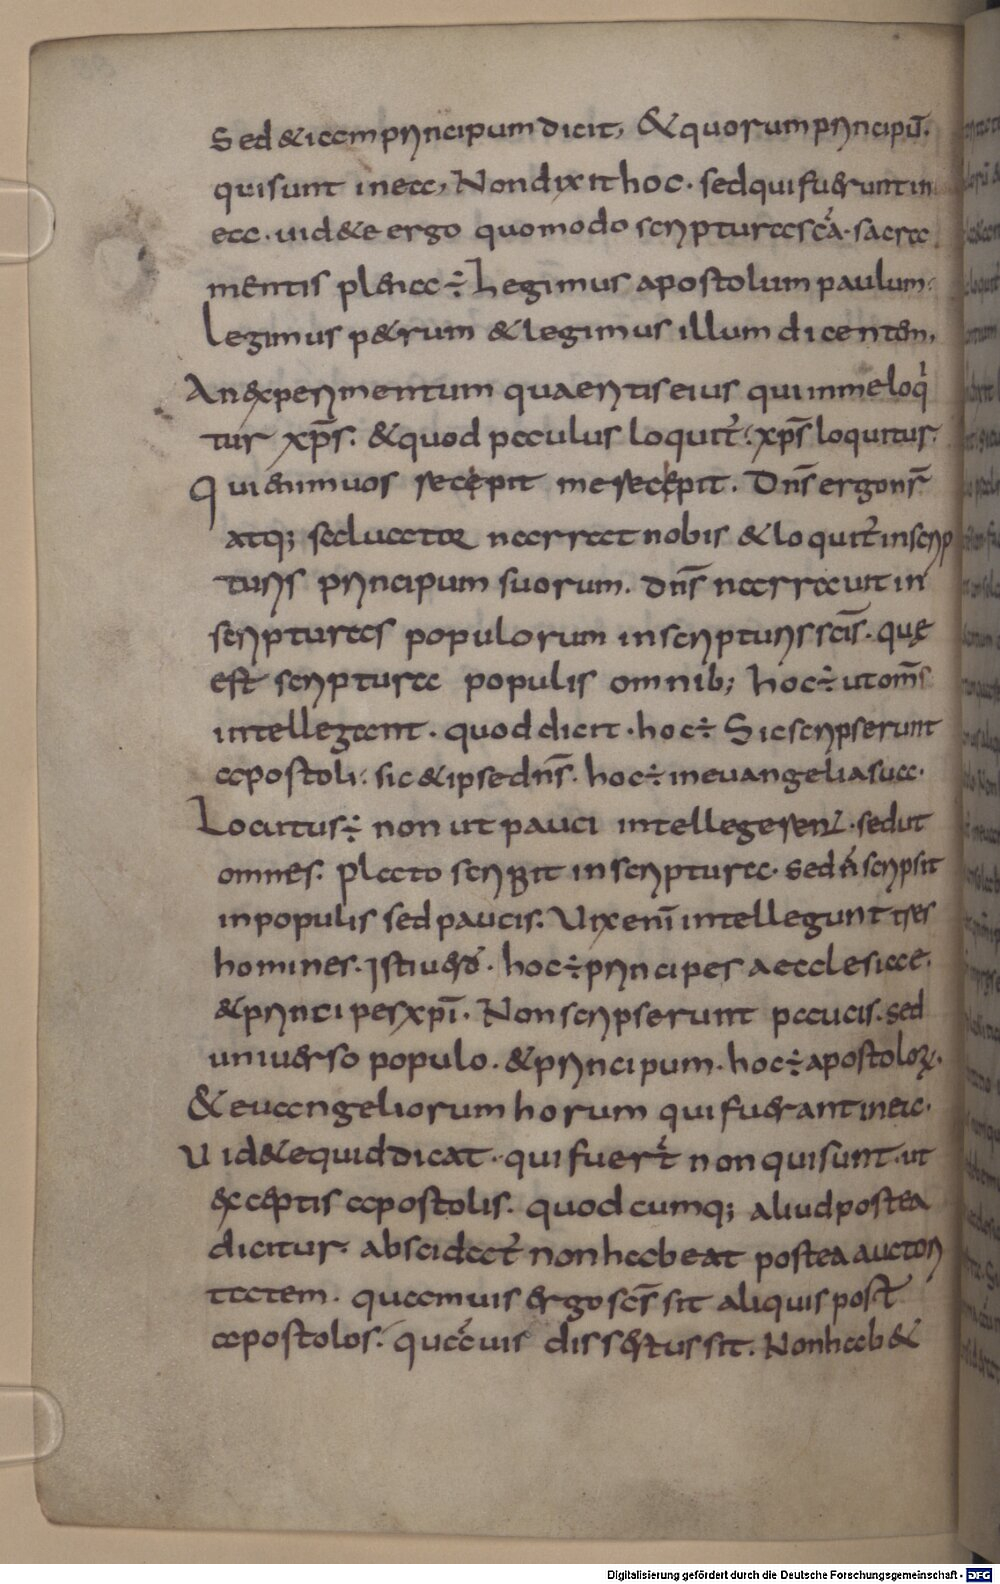 Sed & iam principum dicit, & quorum principū.
qui sunt in ea, Non dixit hoc. sed qui fuerunt in
ea. uid&e ergo quomodo scripturas cā. sacra
mentis plena ÷ Legimus apostolum paulum.
Legimus p&rum & legimus illum dicentem,
An experimentum quaeritis eius qui in me loqi
tur xp̄s. & quod paulus loquit᷑. xp̄s loquitur.
Qui enim uos recepit me recepit. Dn̄s ergo nr̄
atq; saluator narrat nobis & loquit᷑ in scrip
turis principum suorum. dn̄s narrauit in
scripturas populorum in scripturis sc̄is. quę
est scriptura populis omnib; hoc ÷ ut om̄s
intellegant. quod dicit. hoc ÷ Sic scripserunt
apostoli. sic & ipse dn̄s. hoc ÷ in euangelia sua.
Locutus ÷ non ut pauci intellegerent. sed ut
omnes. Plato scripsit in scriptura. sed ń scripsit
in populis sed paucis. Uix enī intellegunt tres
homines. Isti uerō. hoc ÷ principes aecclesiae.
& principes xpī. Non scripserunt paucis. sed
uniuerso populo. & principum. hoc ÷ apostoloꝝ.
& euangeliorum horum qui fuerant in eac.
Uid&e quid dicat. qui fuer̄t non qui sunt. ut
exceptis apostolis. quodcumq; aliud postea
dicitur. abscidat᷑ non habeat postea auctori
tatem. quamuis ergo sc̄s sit aliquis post
apostolos. quāuis dissertus sit. Non hab&